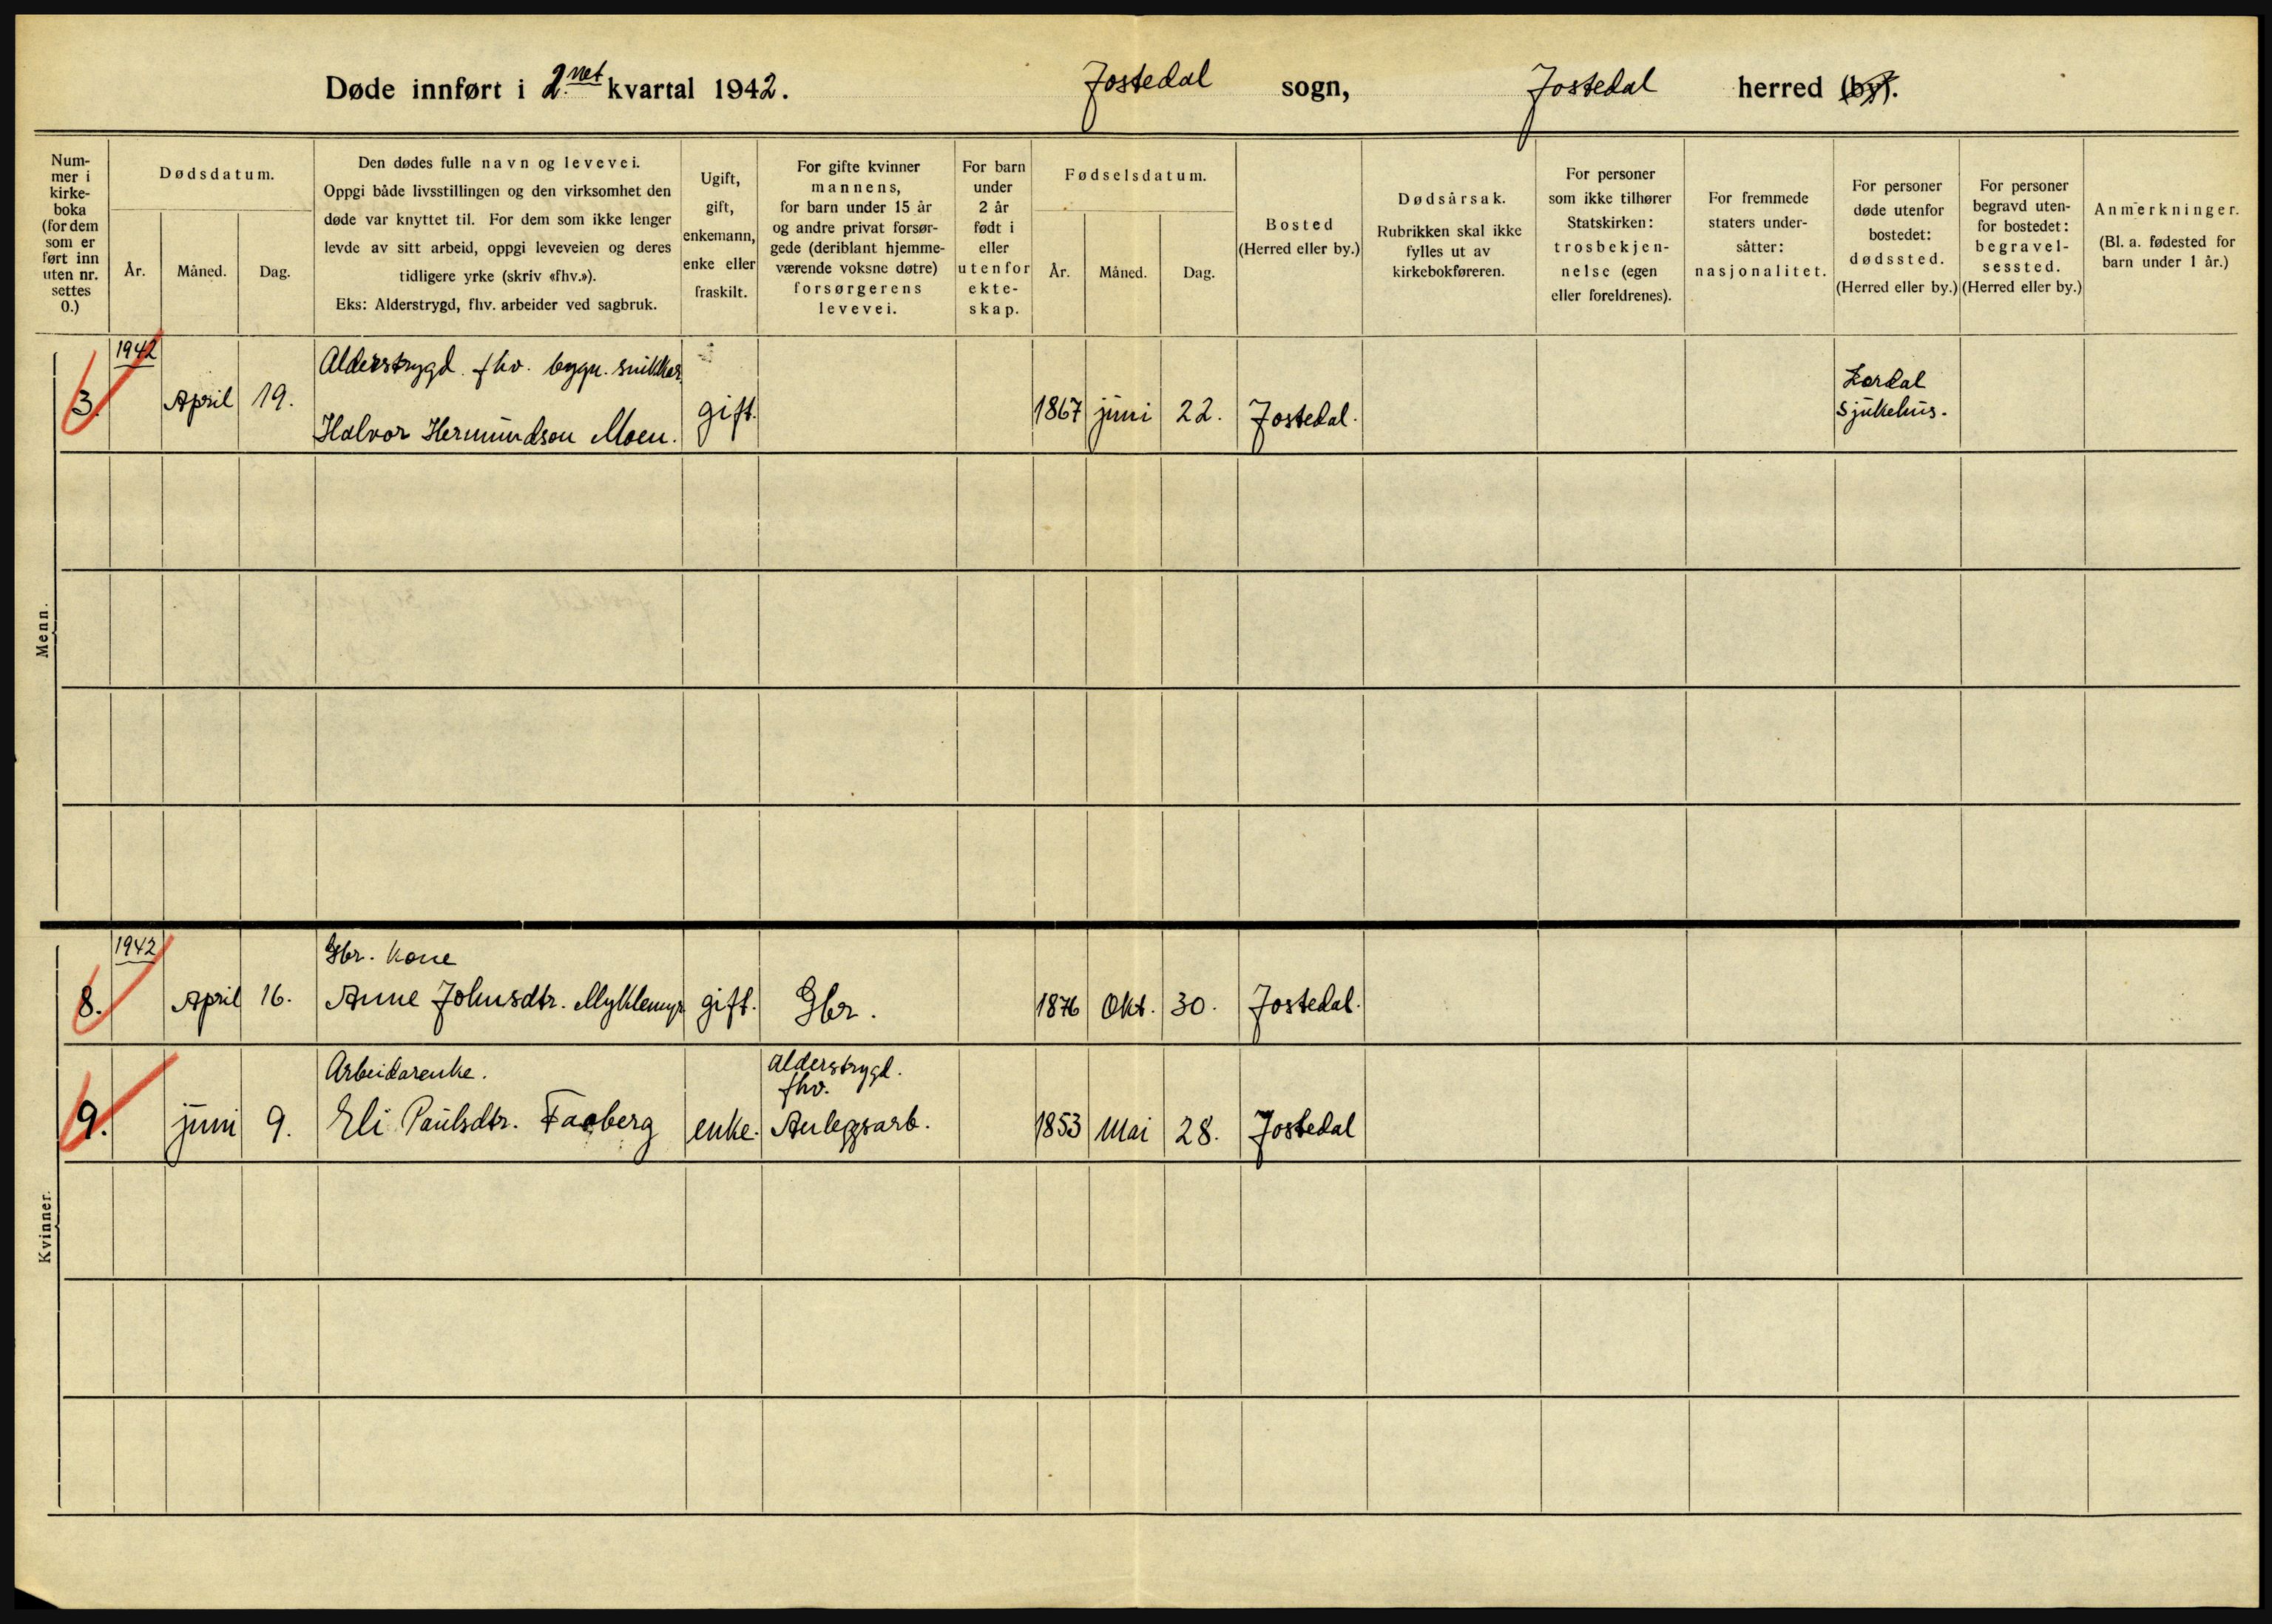 Døde innført i 2.net kvartal 1942. Jostedal sogn, Jostedal herred (by).
Num-
mer i
kirke-
boka
(for dem
som er
ført inn
uten nr.
settes
0.)
Dødsdatum.
År.
Måned.
Dag.
Den dødes fulle navn og levevei.
Oppgi både livsstillingen og den virksomhet den
døde var knyttet til. For dem som ikke lenger
levde av sitt arbeid, oppgi leveveien og deres
tidligere yrke (skriv «fhv.»).
Eks: Alderstrygd, fhv. arbeider ved sagbruk.
Ugift,
gift,
enkemann,
enke eller
fraskilt.
For gifte kvinner
mannens,
for barn under 15 år
og andre privat forsør-
gede (deriblant hjemme-
værende voksne døtre)
forsørgerens
levevei.
For barn
under
2 år
født i
eller
utenfor
ekte-
skap.
Fødselsdatum.
År.
Måned.
Dag.
Bosted
(Herred eller by.)
Dødsårsak.
Rubrikken skal ikke
fylles ut av
kirkebokføreren.
For personer
som ikke tilhører
Statskirken:
trosbekjen-
nelse (egen
eller foreldrenes).
For fremmede
staters under-
såtter:
nasjonalitet.
For personer
døde utenfor
bostedet:
dødssted.
(Herred eller by.)
For personer
begravd uten-
for bostedet:
begravel-
sessted.
(Herred eller by.)
Anmerkninger.
(Bl. a. fødested for
barn under 1 år.)
Menn.
1942
Alderstrygd. fhv. bygn. snikkar
3. April 19. Halvor Hermundson Moen. gift. 1867 juni 22. Jostedal.
Lærdal
Sjukehus.
Kvinner.
1942
Gbr. kone
8. April 16. Anne Johnsdtr. Myklemyr gift. Gbr. 1876 Okt. 30. Jostedal.
Arbeidarenke.
Alderstrygd.
fhv.
9. juni 9. Eli Paulsdtr. Faaberg enke. Anleggsarb. 1853 Mai 28. Jostedal